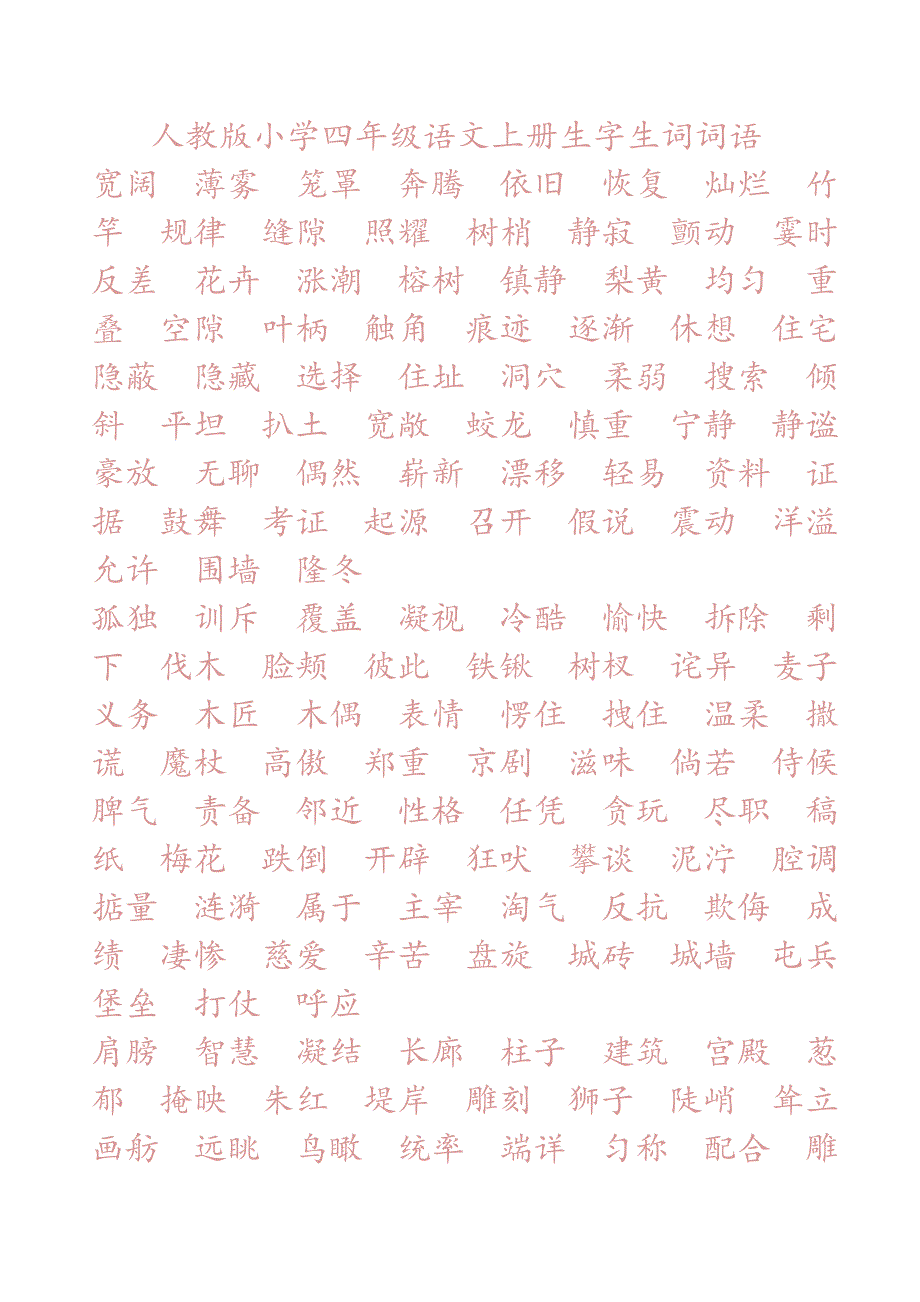 人教版小学四年级语文上册生字生词词语
宽阔 薄雾 笼罩 奔腾 依旧 恢复 灿烂 竹
竿 规律 缝隙 照耀 树梢 静寂 颤动 霎时
反差 花卉 涨潮 榕树 镇静 梨黄 均匀 重
叠 空隙 叶柄 触角 痕迹 逐渐 休想 住宅
隐蔽 隐藏 选择 住址 洞穴 柔弱 搜索 倾
斜 平坦 扒土 宽敞 蛟龙 慎重 宁静 静谧
豪放 无聊 偶然 崭新 漂移 轻易 资料 证
据 鼓舞 考证 起源 召开 假说 震动 洋溢
允许 围墙 隆冬
孤独 训斥 覆盖 凝视 冷酷 愉快 拆除 剩
下 伐木 脸颊 彼此 铁锹 树杈 诧异 麦子
义务 木匠 木偶 表情 愣住 拽住 温柔 撒
谎 魔杖 高傲 郑重 京剧 滋味 倘若 侍候
脾气 责备 邻近 性格 任凭 贪玩 尽职 稿
纸 梅花 跌倒 开辟 狂吠 攀谈 泥泞 腔调
掂量 涟漪 属于 主宰 淘气 反抗 欺侮 成
绩 凄惨 慈爱 辛苦 盘旋 城砖 城墙 屯兵
堡垒 打仗 呼应
肩膀 智慧 凝结 长廊 柱子 建筑 宫殿 葱
郁 掩映 朱红 堤岸 雕刻 狮子 陡峭 耸立
画舫 远眺 鸟瞰 统率 端详 匀称 配合 雕